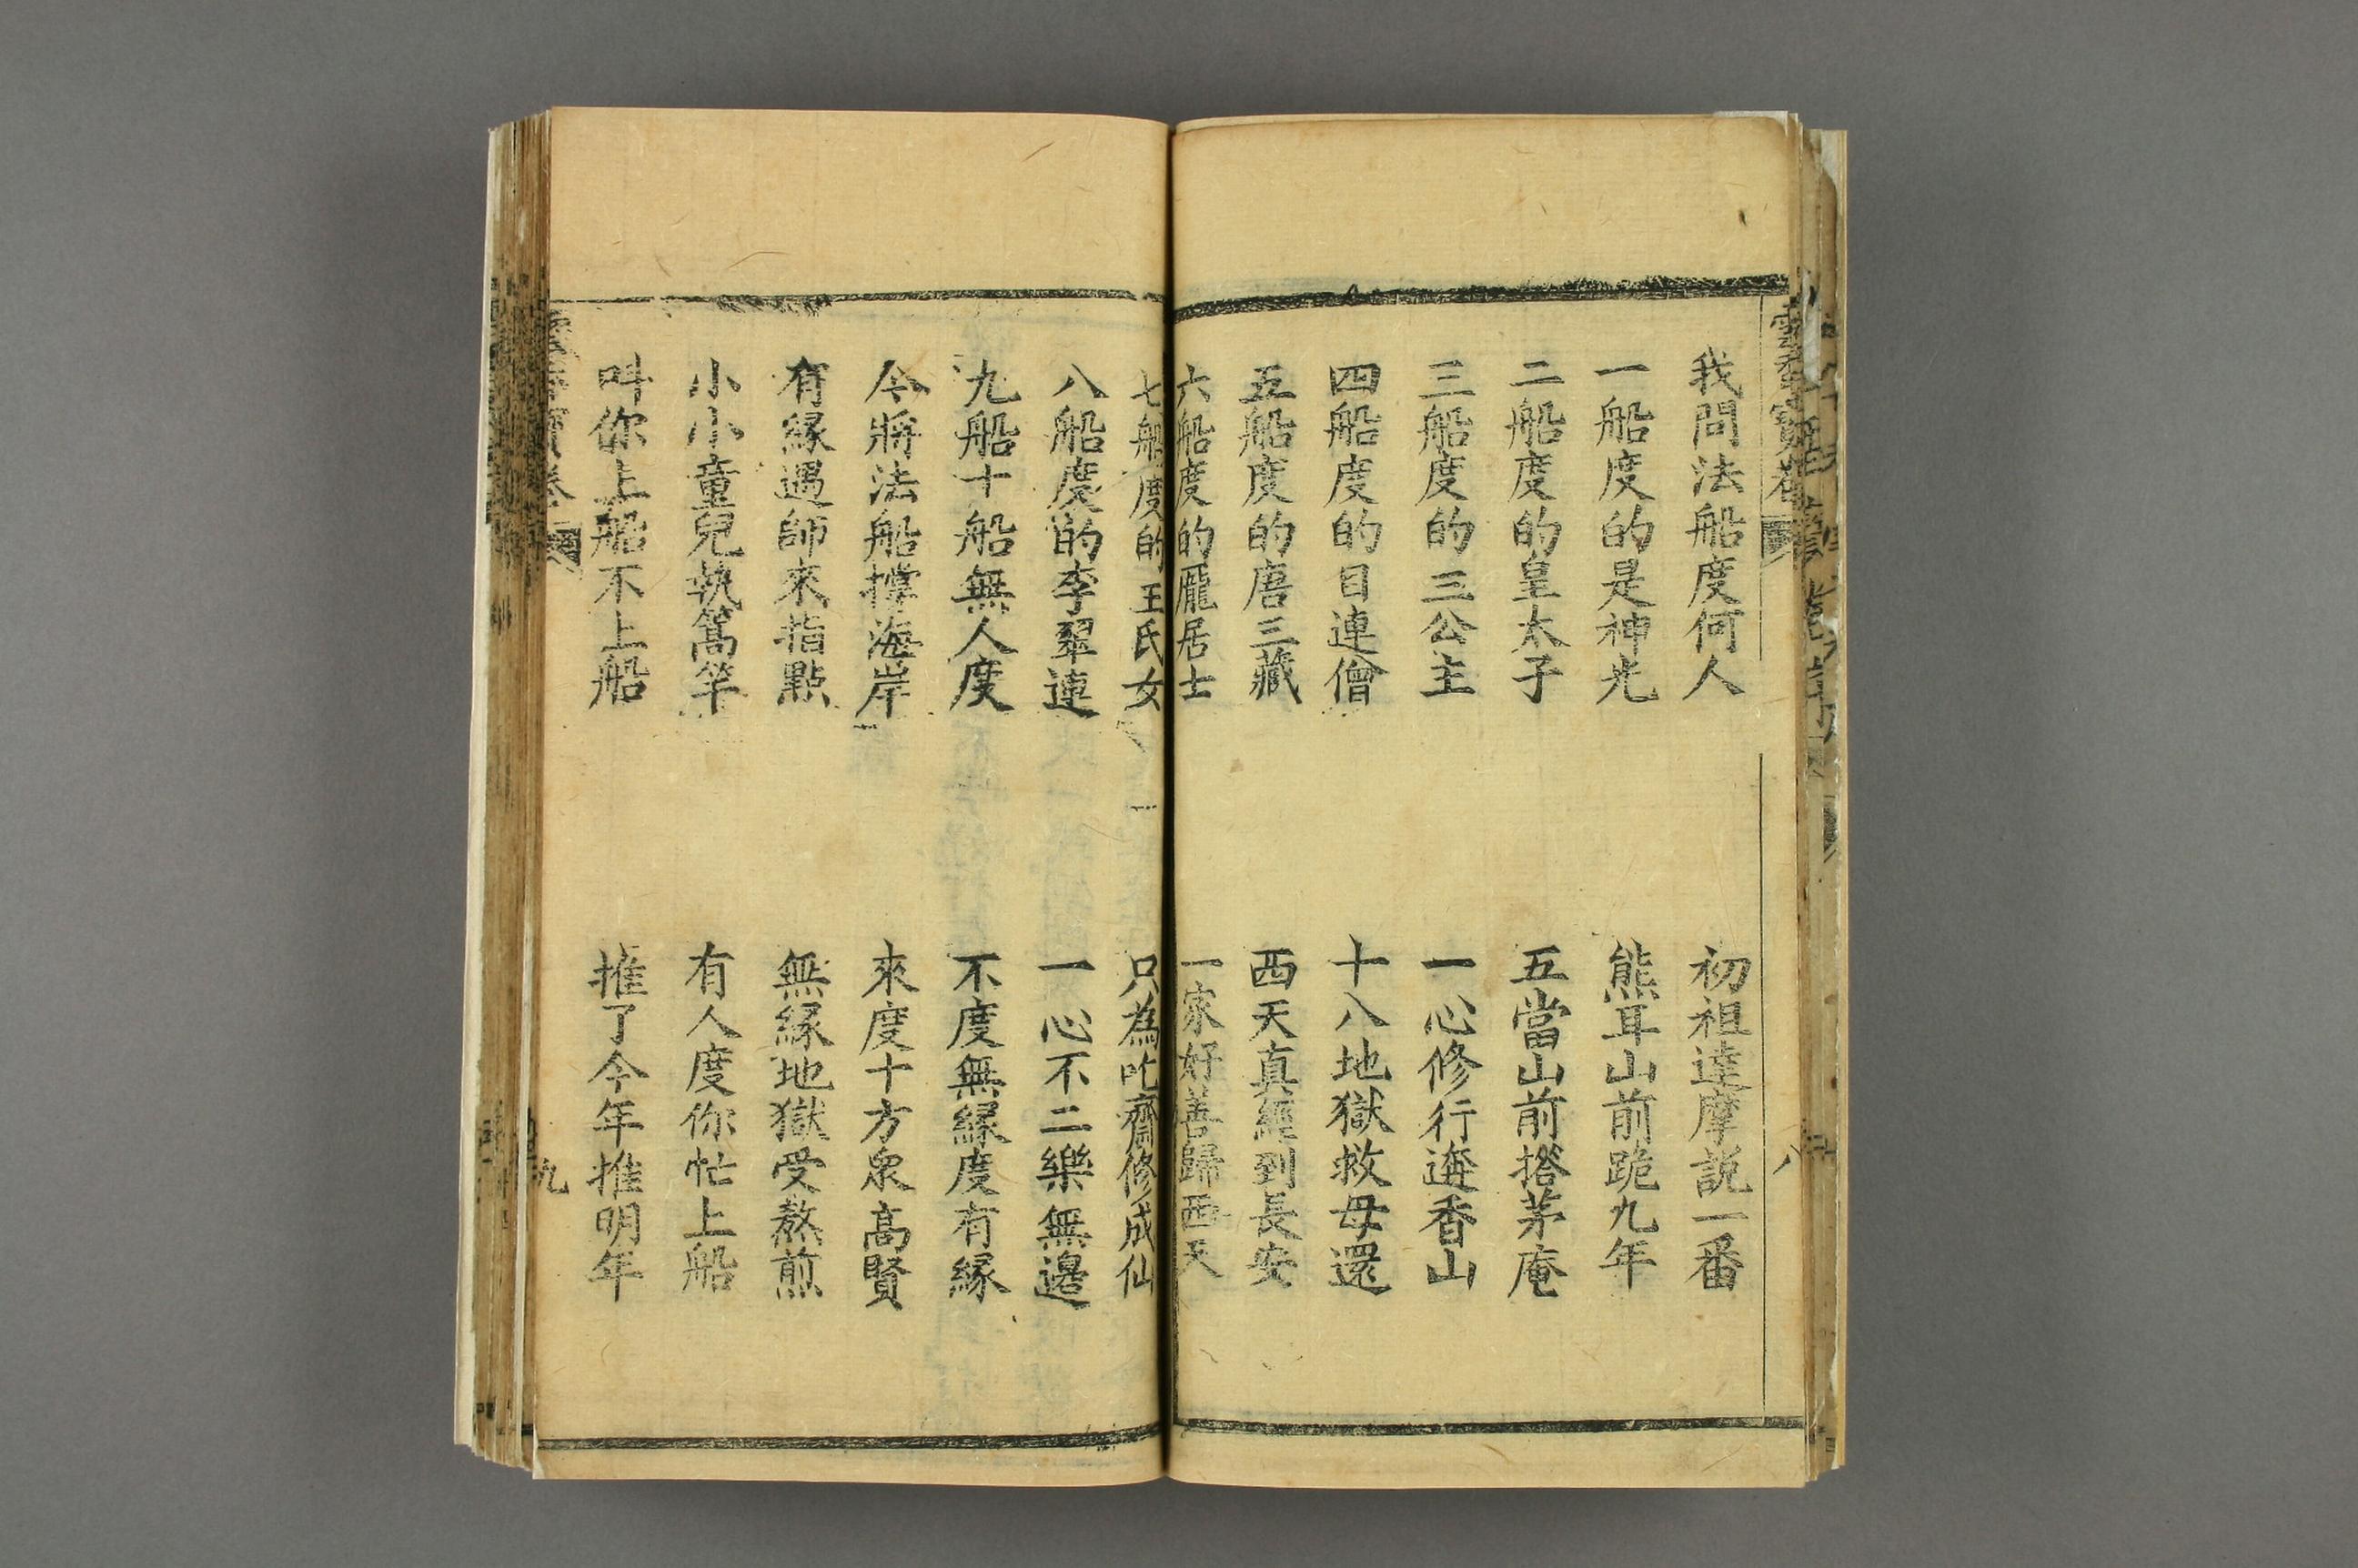 我問法船度何人　初祖達摩説一番
一船度的是神光　熊耳山前跪九年
二船度的皇太子　五當山前搭茅庵
三船度的三公主　一心修行遊香山
四船度的目連僧　十八地獄救母還
五船度的唐三藏　西天真經到長安
六船度的龎居士　一家好善歸西天
七船度的王氏女　只為吃齋修成仙
八船度的李翠連　一心不二樂無邊
九船十船無人度　不度無緣度有緣
今將法船撐海岸　來度十方衆高賢
有緣遇師來指點　無緣地獄受熬煎
小小童兒執篙竿　有人度你忙上船
叫你上船不上船　推了今年推明年
九